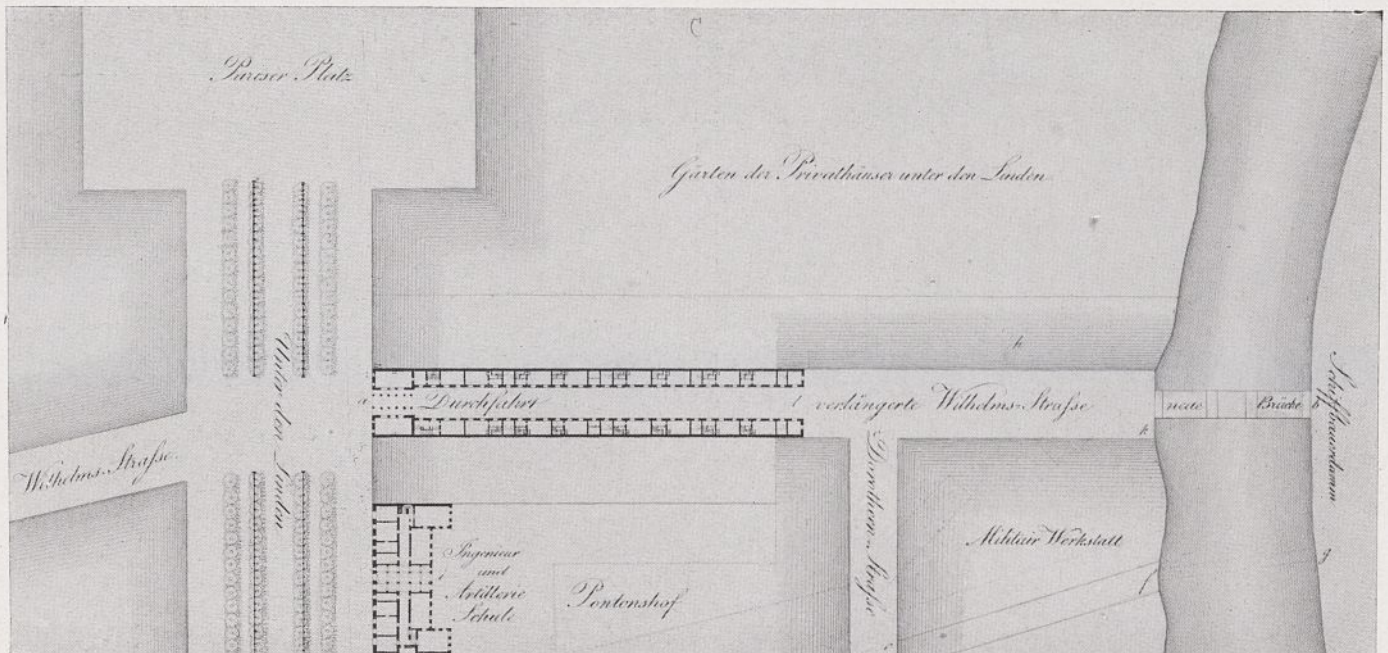 C
Pariser Platz
Gärten der Privathäuser unter den Linden
h
Unter den Linden
a
Durchfahrt
l
verlängerte Wilhelms-Straſse
neue
Brücke
b
Schiffbauerdamm
k
Wilhelms-Straſse.
Dorotheen-Straſse
Militair Werkstatt
g
f
Ingenieur
und
Artillerie
Schule
i
Pontonshof
e